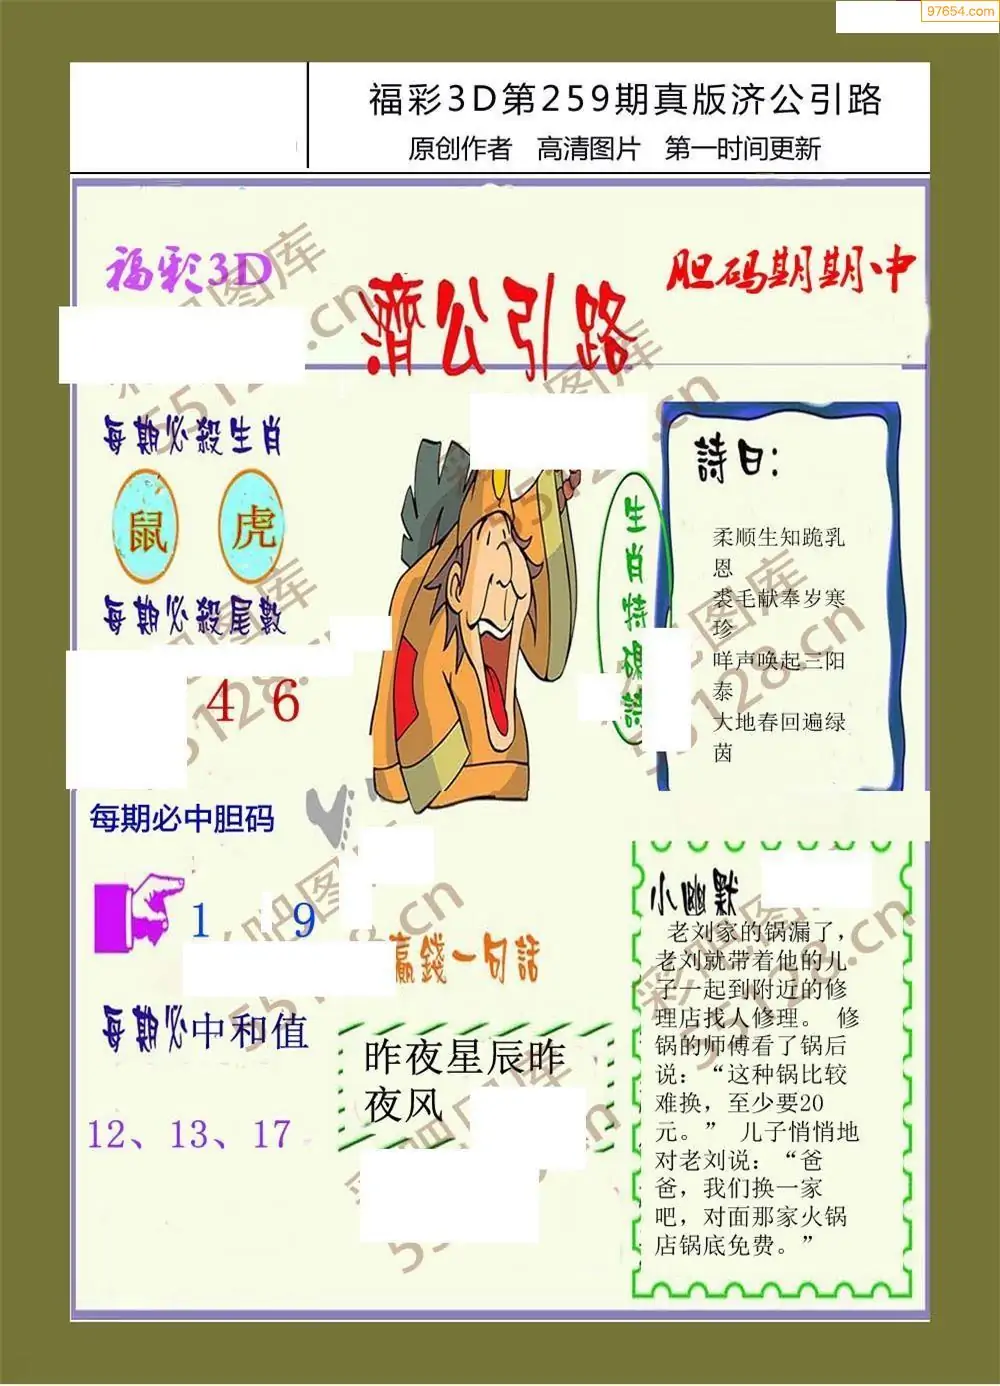 97654.com
福彩3D第259期真版济公引路
原创作者 高清图片 第一时间更新
福彩3D
胆码期期中
濟公引路
每期必殺生肖
鼠 虎
每期必殺尾數
4 6
每期必中胆码
1 9
每期必中和值
12、13、17
生肖特碼詩
詩曰：
柔顺生知跪乳
恩
裘毛献奉岁寒
珍
咩声唤起三阳
泰
大地春回遍绿
茵
赢錢一句話
昨夜星辰昨
夜风
小幽默
老刘家的锅漏了，
老刘就带着他的儿
子一起到附近的修
理店找人修理。 修
锅的师傅看了锅后
说：“这种锅比较
难换，至少要20
元。” 儿子悄悄地
对老刘说：“爸
爸，我们换一家
吧，对面那家火锅
店锅底免费。”
彩吧图库
55128.cn